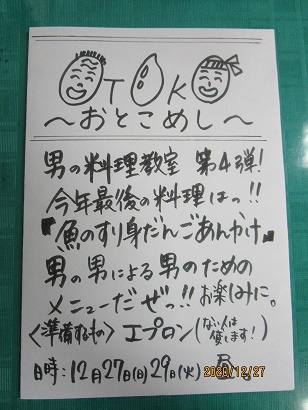 OTOKO
～おとこめし～
男の料理教室 第4弾!
今年最後の料理はっ!!
『魚のすり身だんごあんかけ』
男の男による男のための
メニューだぜっ!! お楽しみに。
〈準備するもの〉エプロン(ない人は貸します!)
日時:12月27日(日)29日(火)
2020/12/27